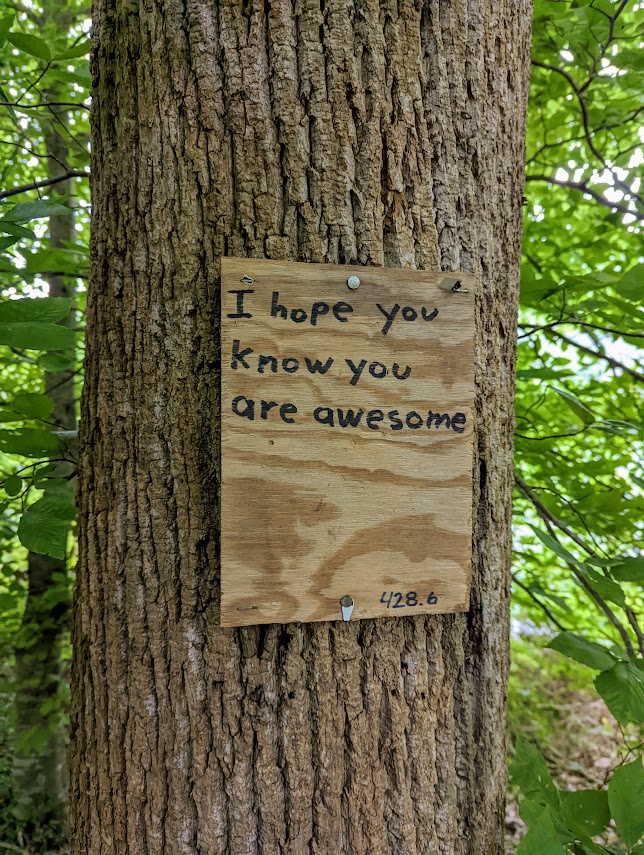 I hope you
know you
are awesome
428.6